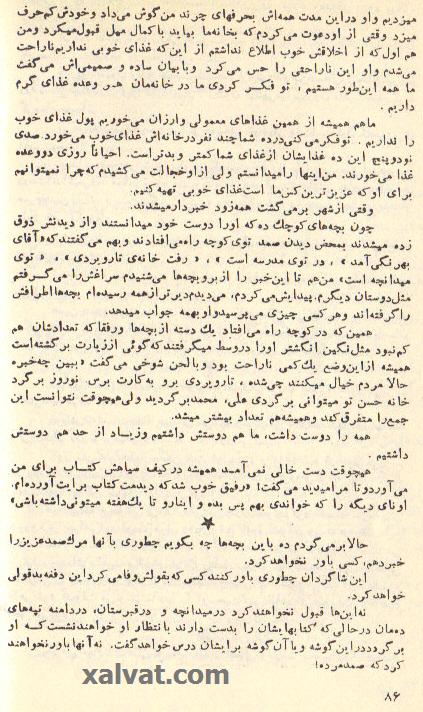 میزدیم و او در این مدت همه‌اش بحرفهای چرند من گوش می‌داد و خودش کم‌حرف
میزد وقتی از او دعوت می‌کردم که بخانه‌ما بیاید با کمال میل قبول میکرد و من
هم اول که از اخلاقش خوب اطلاع نداشتم از این که غذای خوبی نداریم ناراحت
می‌شدم و او این ناراحتی را حس می‌کرد و بابیان ساده و صمیمی‌اش می‌گفت
ما همه این‌طور هستیم ، تو فکر کردی ما در خانه‌مان هر وعده غذای گرم
داریم .
ما هم همیشه از همین غذاهای معمولی و ارزان می‌خوریم پول غذای خوب
را نداریم . تو فکر می کنی در ده شما چند نفر در خانه‌اش غذای خوب می‌خورد. صدی
نود و پنج این ده غذایشان از غذای شما کمتر و بدتر است. احیاناً روزی دو وعده
غذا می‌خورند. من اینها را میدانستم ولی از او خجالت می‌کشیدم که چرا نمیتوانیم
برای او که عزیزترین کس ما است غذای خوبی تهیه کنیم.
وقتی از شهر بر می‌گشت همه زود خبردار میشدند.
چون بچه‌های کوچک ده که او را دوست خود میدانستند و از دیدنش ذوق
زده میشدند بمحض دیدن صمد توی کوچه راه می‌افتادند و بهم می‌گفتند که «آقای
بهرنگی آمد» ، در توی مدرسه است» ، « رفت خانه‌ی تاروبردی » ، « توی
میدانچه است» من هم تا این خبر را از بروبچه‌ها می‌شنیدم سراغش را می‌گرفتم
مثل دوستان دیگرم. پیدایش می‌کردم، می‌دیدم دیرتر از همه رسیده‌ام بچه‌ها اطرافش
را گرفته‌اند و هر کسی چیزی می‌پرسید و او بهمه جواب میدهد.
همین که در کوچه راه می‌افتاد یک دسته از بچه‌ها و رفقا که تعدادشان هم
کم نبود مثل نگین انگشتر او را در وسط میگرفتند که گوئی از زیارت برگشته است
همیشه از این وضع یک کمی ناراحت بود و با لحن شوخی می‌گفت «ببین چه‌خبره
حالا مردم خیال میکنند چی‌شده ، تاروبردی برو به‌کارت برس. نوروز برگرد
خانه حسن تو میتوانی برگردی علی، محمد برگردید ولی هیچوقت نتوانست این
جمع را متفرق کند و همیشه هم تعداد بیشتر میشد.
همه را دوست داشت، ما هم دوستش داشتیم و زیاد از حد هم دوستش
داشتیم .
هیچوقت دست خالی نمی‌آمد همیشه در کیف سیاهش کتاب برای من
می‌آورد و تا مرا میدید می‌گفت: «رفیق خوب شد که دیدمت کتاب برایت آورده‌ام.
اونای دیگه را که خواندی بهم پس بده و اینارو تا یک‌هفته میتونی داشته باشی»
★
حالا برمی‌گردم ده با این بچه‌ها چه بگویم چطوری بآنها مرگ صمد عزیز را
خبر دهم، کسی باور نخواهد کرد.
این شاگردان چطوری باور کنند کسی که بقولش وفا می‌کرد این دفعه بدقولی
خواهد کرد.
نه این‌ها قبول نخواهند کرد در میدانچه و در قبرستان، در دامنه تپه‌های
ده‌مان در حالی که کتابهایشان را بدست دارند با انتظار او خواهند نشست که او
برگردد در این گوشه و یا آن گوشه برایشان درس خواهد گفت. نه آنها باور نخواهند
کرد که صمد مرده!
xalvat.com
۸۶